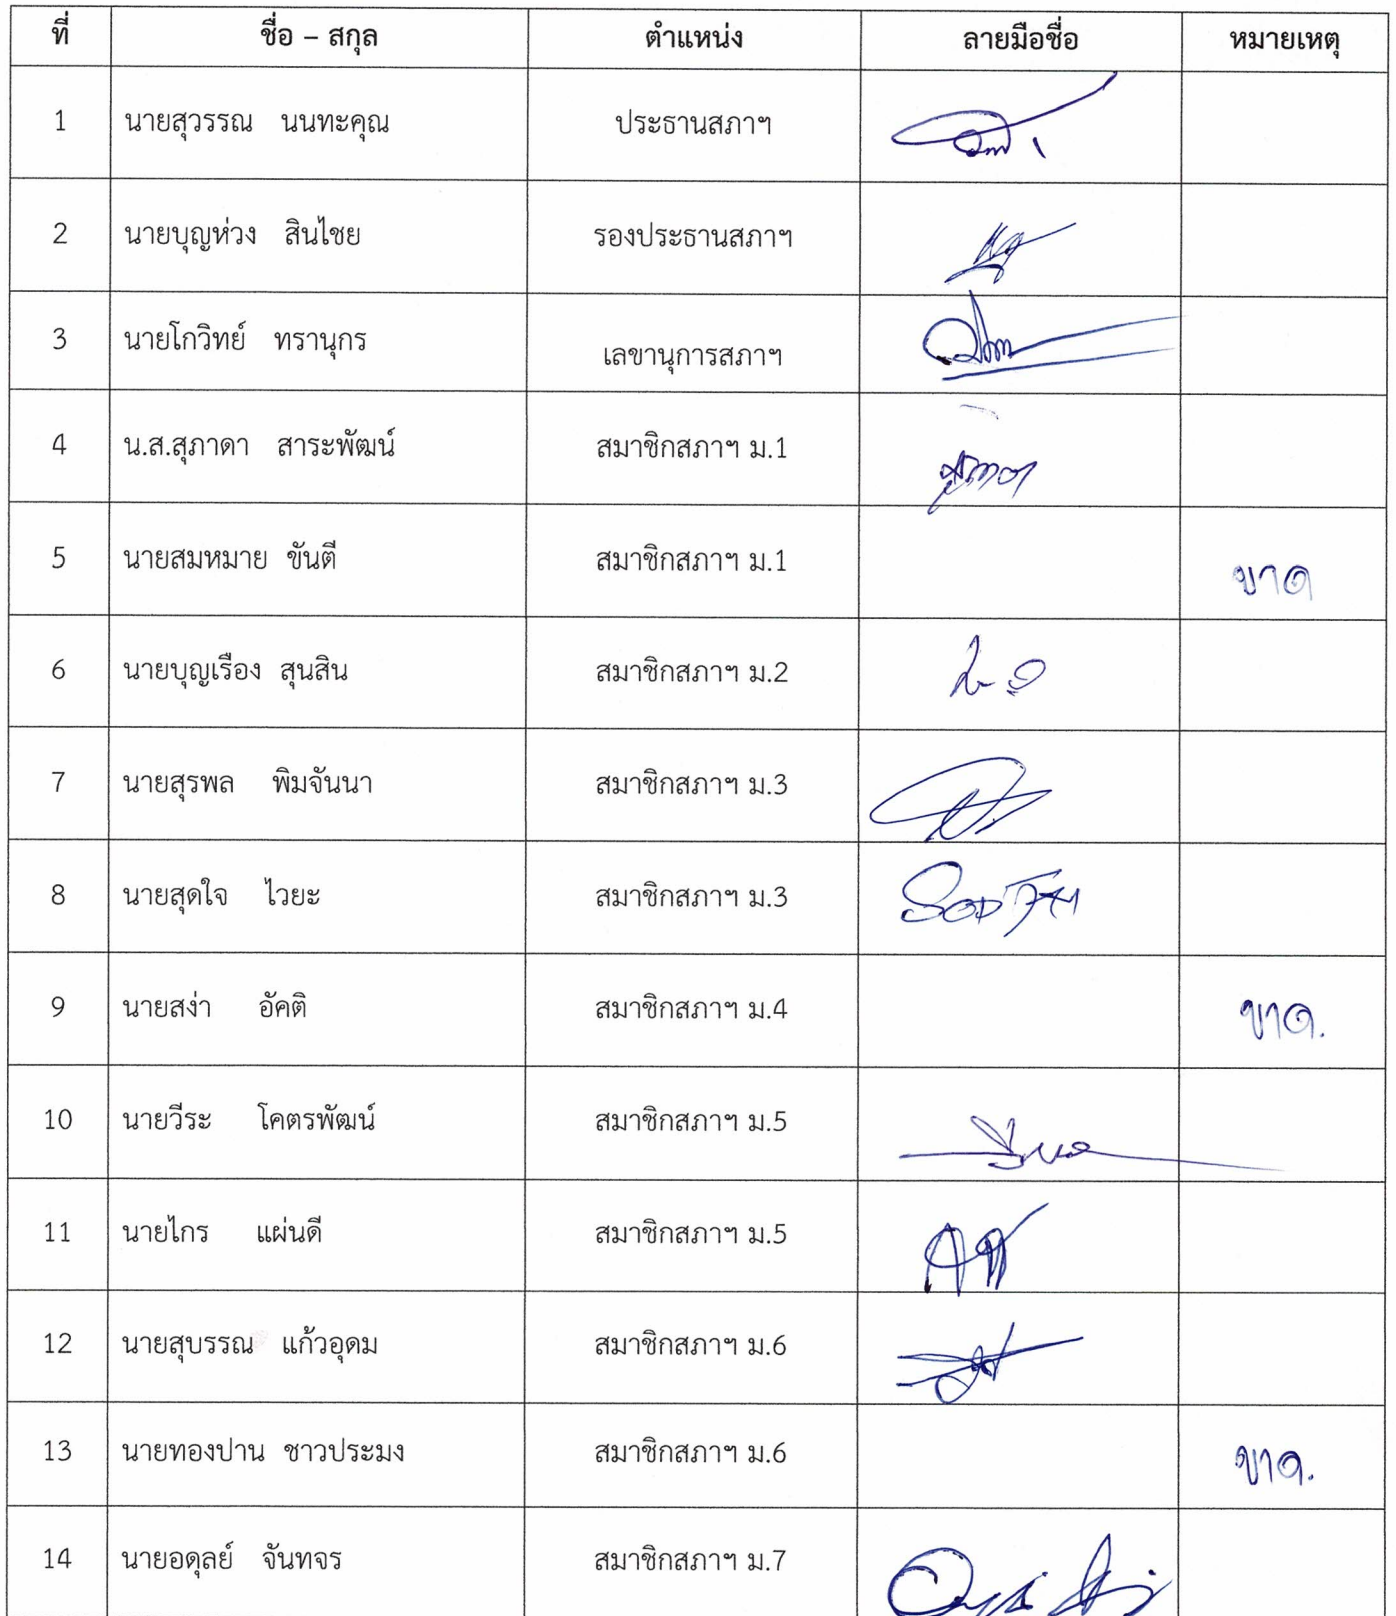 ที่ ชื่อ – สกุล ตำแหน่ง ลายมือชื่อ หมายเหตุ
1 นายสุวรรณ นนทะคุณ ประธานสภาฯ
2 นายบุญห่วง สินไชย รองประธานสภาฯ
3 นายโกวิทย์ ทรานุกร เลขานุการสภาฯ
4 น.ส.สุภาดา สาระพัฒน์ สมาชิกสภาฯ ม.1 สุภาดา
5 นายสมหมาย ขันตี สมาชิกสภาฯ ม.1 ขาด
6 นายบุญเรือง สุนสิน สมาชิกสภาฯ ม.2
7 นายสุรพล พิมจันนา สมาชิกสภาฯ ม.3
8 นายสุดใจ ไวยะ สมาชิกสภาฯ ม.3
9 นายสง่า อัคติ สมาชิกสภาฯ ม.4 ขาด.
10 นายวีระ โคตรพัฒน์ สมาชิกสภาฯ ม.5
11 นายไกร แผ่นดี สมาชิกสภาฯ ม.5
12 นายสุบรรณ แก้วอุดม สมาชิกสภาฯ ม.6
13 นายทองปาน ชาวประมง สมาชิกสภาฯ ม.6 ขาด.
14 นายอดุลย์ จันทจร สมาชิกสภาฯ ม.7